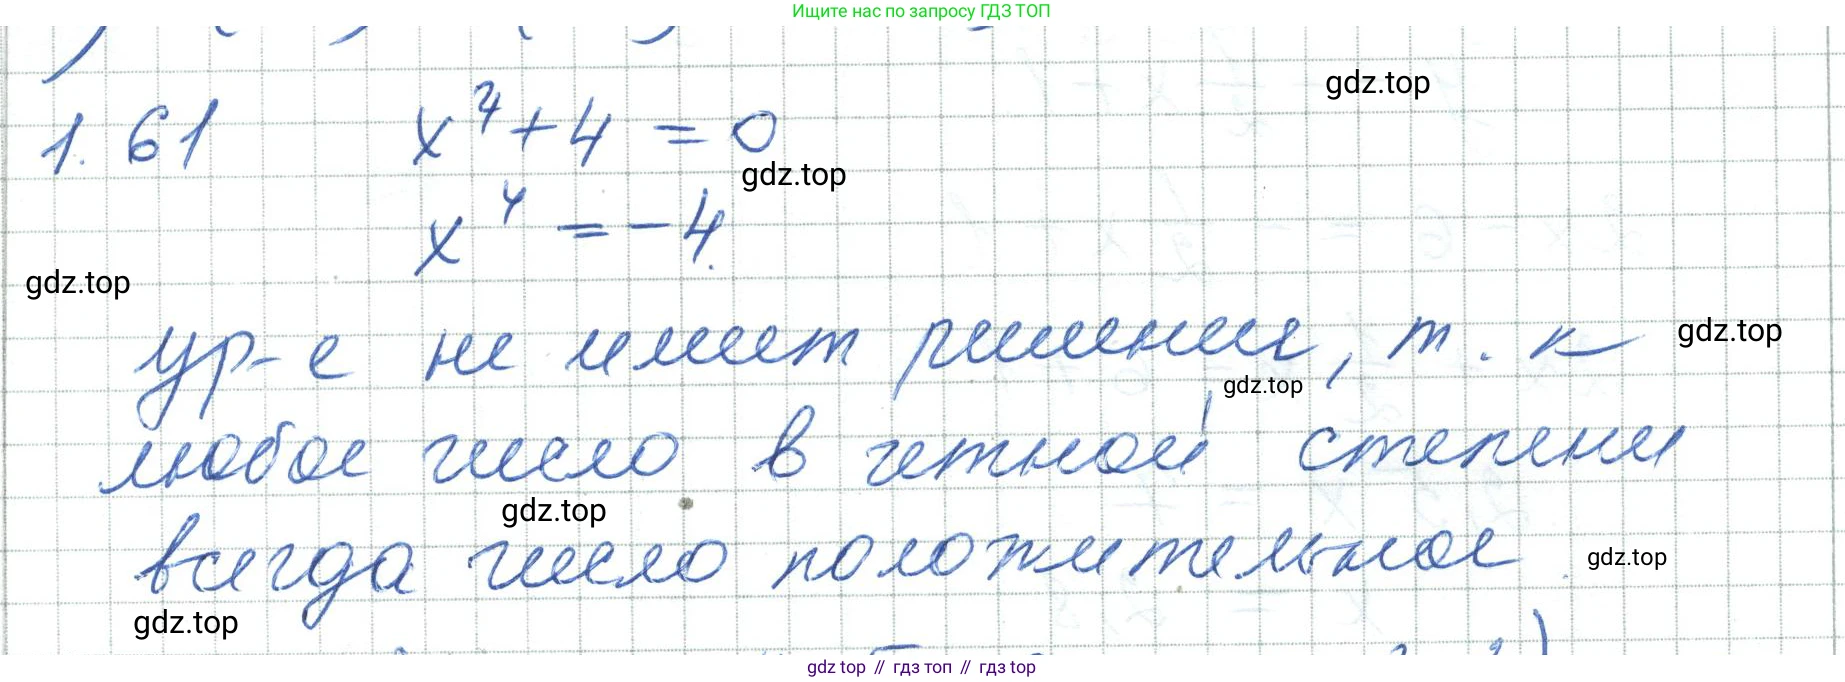 Ищите нас по запросу ГДЗ ТОП
gdz.top
1.61 x⁴ + 4 = 0
gdz.top
x⁴ = -4.
gdz.top
ур-е не имеет решения, т. к
gdz.top
gdz.top
любое число в четной степени
gdz.top
всегда число положительное.
gdz.top
gdz.top
gdz top // гдз топ // гдз top